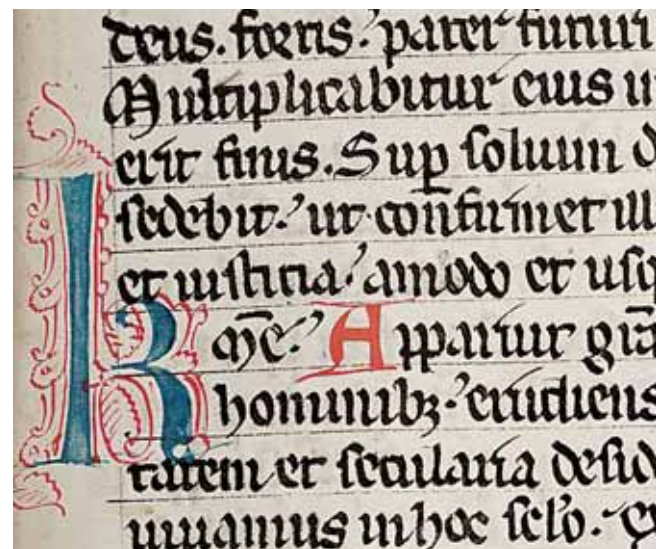 deus. fortis. pater futuri
Multiplicabitur eius i
erit finis. Sup solium d
sedebit. ut confirmet ill
et iusticia. amodo et usq
K m̄e. Apparuit grā
hominibz. erudiens
tatem et secularia desid
uiuamus in hoc sclo.